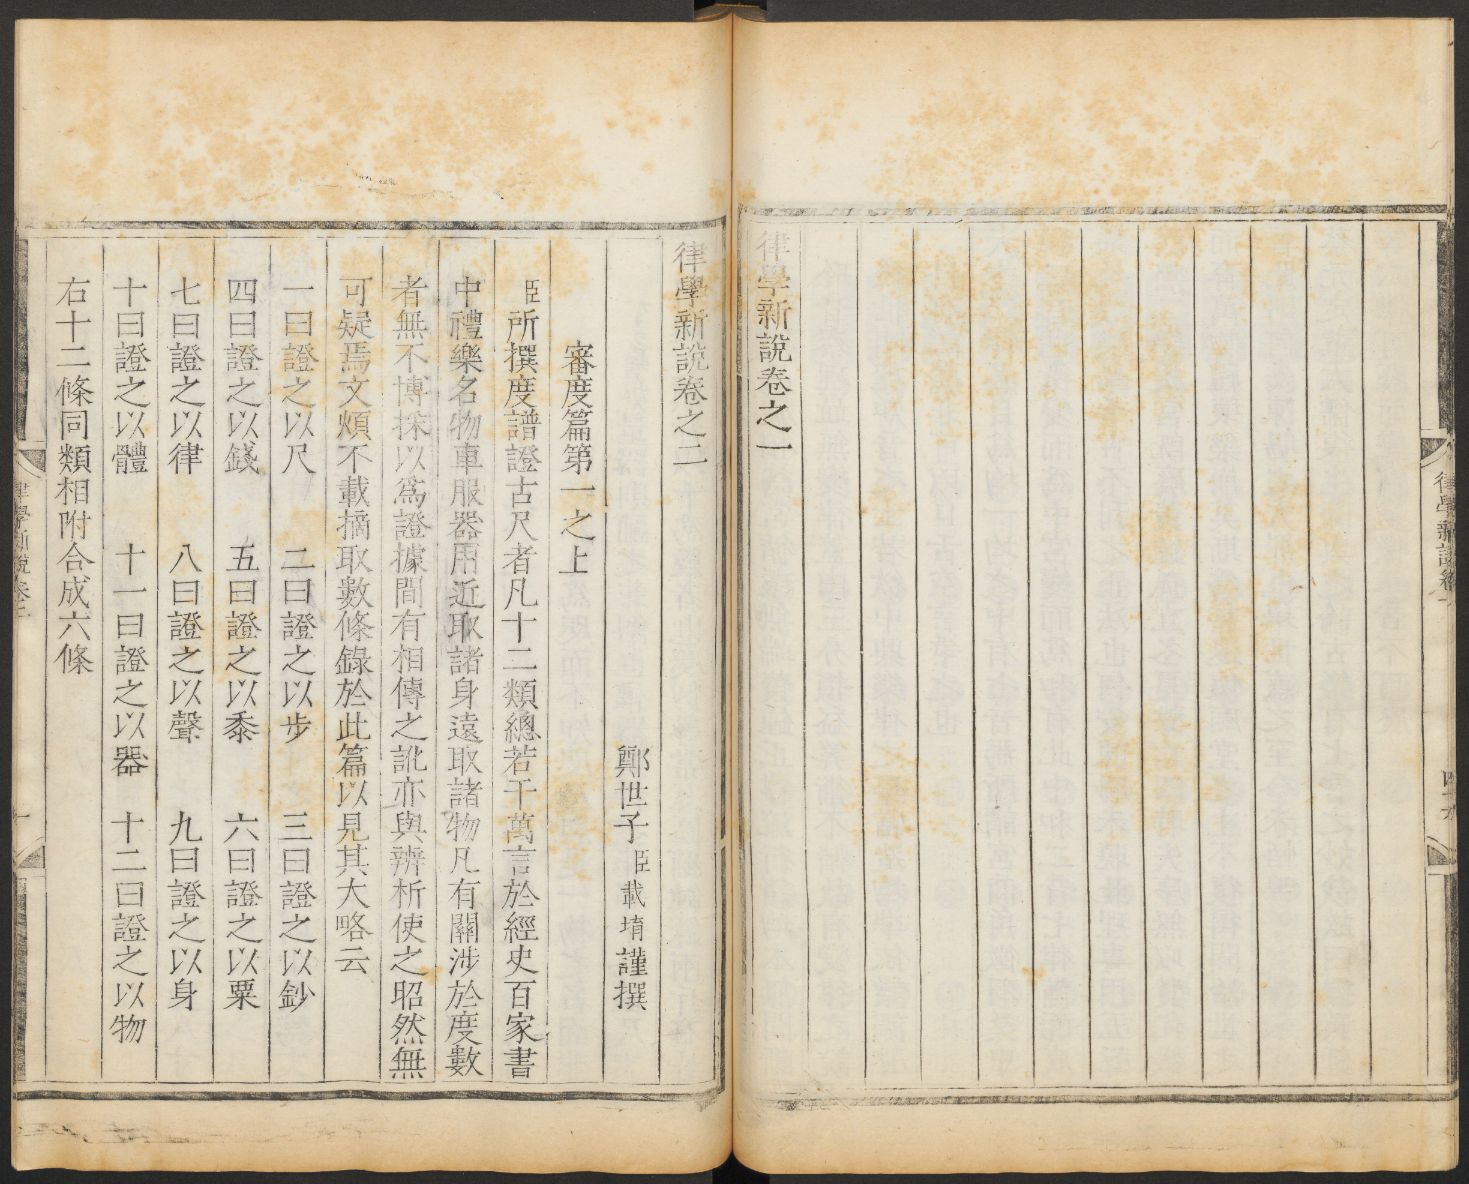 律學新說卷之一
律學新說卷之二
鄭世子臣載堉謹撰
審度篇第一之上
臣所撰度譜證古尺者凡十二類總若干萬言於經史百家書
中禮樂名物車服器用近取諸身遠取諸物凡有關涉於度數
者無不博採以爲證據間有相傳之訛亦與辨析使之昭然無
可疑焉文煩不載摘取數條錄於此篇以見其大略云
一曰證之以尺 二曰證之以步 三曰證之以鈔
四曰證之以錢 五曰證之以黍 六曰證之以粟
七曰證之以律 八曰證之以聲 九曰證之以身
十曰證之以體 十一曰證之以器 十二曰證之以物
右十二條同類相附合成六條
律學新說卷二